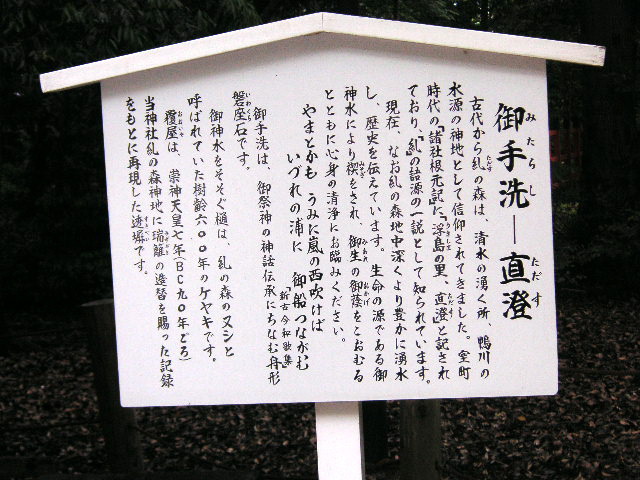 御手洗―直澄
みたらし ただす
古代から糺の森は、清水の湧く所、鴨川の
水源の神地として信仰されてきました。室町
時代の『諸社根元記』に『浮島の里、直澄』と記され
ており、『糺』の語源の一説として知られています。
現在、なお糺の森地中深くより豊かに湧水
し、歴史を伝えています。生命の源である御
神水により禊をされ、御生の御蔭をこおむる
とともに心身の清浄にお臨みください。
やまとかも うみに嵐の西吹けば
いづれの浦に 御船つながむ
『新古今和歌集』
御手洗は、御祭神の神話伝承にちなむ舟形
磐座石です。
御神水をそそぐ樋は、糺の森のヌシと
呼ばれていた樹齢六〇〇年のケヤキです。
覆屋は、崇神天皇七年(BC九〇年ごろ)
当神社糺の森神地に瑞籬の造替を賜った記録
をもとに再現した